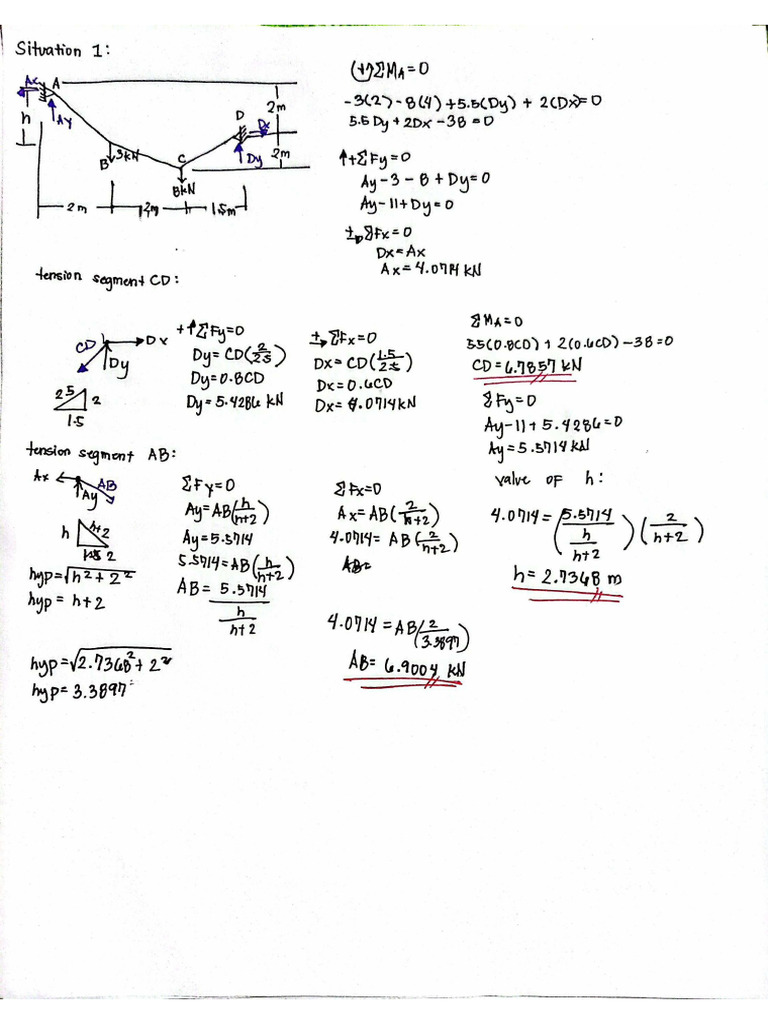 Situation 1:
Ax A
h
Ay
B 3kN
C
8kN
D
Dx
Dy
2m
2m
2m 2m 1.5m
(+) ΣMA = 0
-3(2) - 8(4) + 5.5(Dy) + 2(Dx) = 0
5.5 Dy + 2Dx - 38 = 0
↑+ ΣFy = 0
Ay - 3 - 8 + Dy = 0
Ay - 11 + Dy = 0
+→ ΣFx = 0
Dx = Ax
Ax = 4.0714 kN
tension segment CD:
CD Dx
Dy
2.5 2
1.5
+↑ ΣFy = 0
Dy = CD(2/2.5)
Dy = 0.8CD
Dy = 5.4286 kN
+→ ΣFx = 0
Dx = CD(1.5/2.5)
Dx = 0.6CD
Dx = 4.0714 kN
ΣMA = 0
5.5(0.8CD) + 2(0.6CD) - 38 = 0
CD = 6.7857 kN
ΣFy = 0
Ay - 11 + 5.4286 = 0
Ay = 5.5714 kN
tension segment AB:
Ax AB
Ay
h h+2
2
hyp = √h² + 2²
hyp = h+2
ΣFy = 0
Ay = AB(h/h+2)
Ay = 5.5714
5.5714 = AB(h/h+2)
AB = 5.5714
h
h+2
ΣFx = 0
Ax = AB(2/h+2)
4.0714 = AB(2/h+2)
AB =
4.0714 = AB(2/3.3897)
AB = 6.9004 kN
value of h:
4.0714 = (5.5714 / h/h+2)(2/h+2)
h = 2.7368 m
hyp = √2.7368² + 2²
hyp = 3.3897